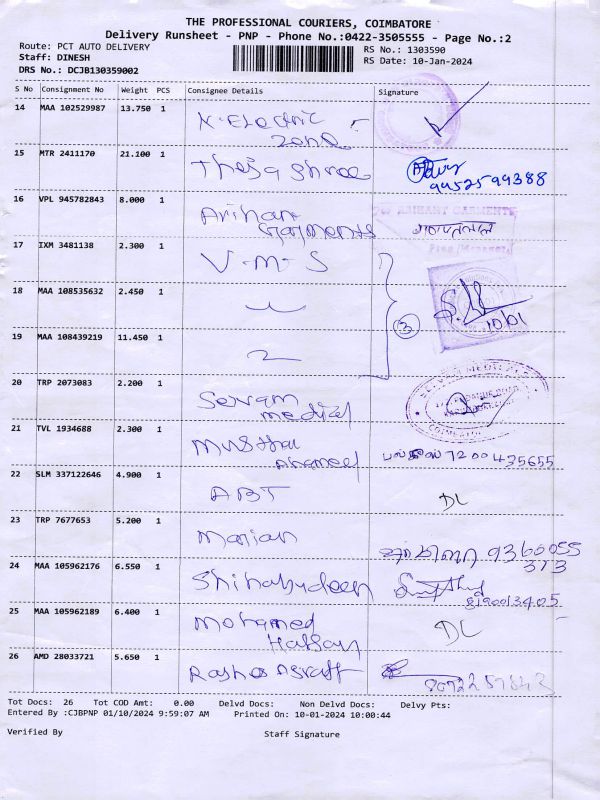 THE PROFESSIONAL COURIERS, COIMBATORE
Delivery Runsheet - PNP - Phone No.:0422-3505555 - Page No.:2
Route: PCT AUTO DELIVERY
RS No.: 1303590
Staff: DINESH
RS Date: 10-Jan-2024
DRS No.: DCJB130359002
S No Consignment No Weight PCS Consignee Details Signature
14 MAA 102529987 13.750 1 K-Electric
Zone
15 MTR 2411170 21.100 1 Theja Shree
9952599388
16 VPL 945782843 8.000 1 Arihan
Garments
17 IXM 3481138 2.300 1 V-M-S
18 MAA 108535632 2.450 1
3
10/01
19 MAA 108439219 11.450 1
20 TRP 2073083 2.200 1 Servam
medical
21 TVL 1934688 2.300 1 Musthak
Ahamed 7200435655
22 SLM 337122646 4.900 1 ABT DL
23 TRP 7677653 5.200 1 Marian
9360055
373
24 MAA 105962176 6.550 1 Shihabudeen
25 MAA 105962189 6.400 1 Mohamed
Hassan DL
26 AMD 28033721 5.650 1
Tot Docs: 26 Tot COD Amt: 0.00 Delvd Docs: Non Delvd Docs: Delvy Pts:
Entered By :CJBPNP 01/10/2024 9:59:07 AM Printed On: 10-01-2024 10:00:44
Verified By Staff Signature